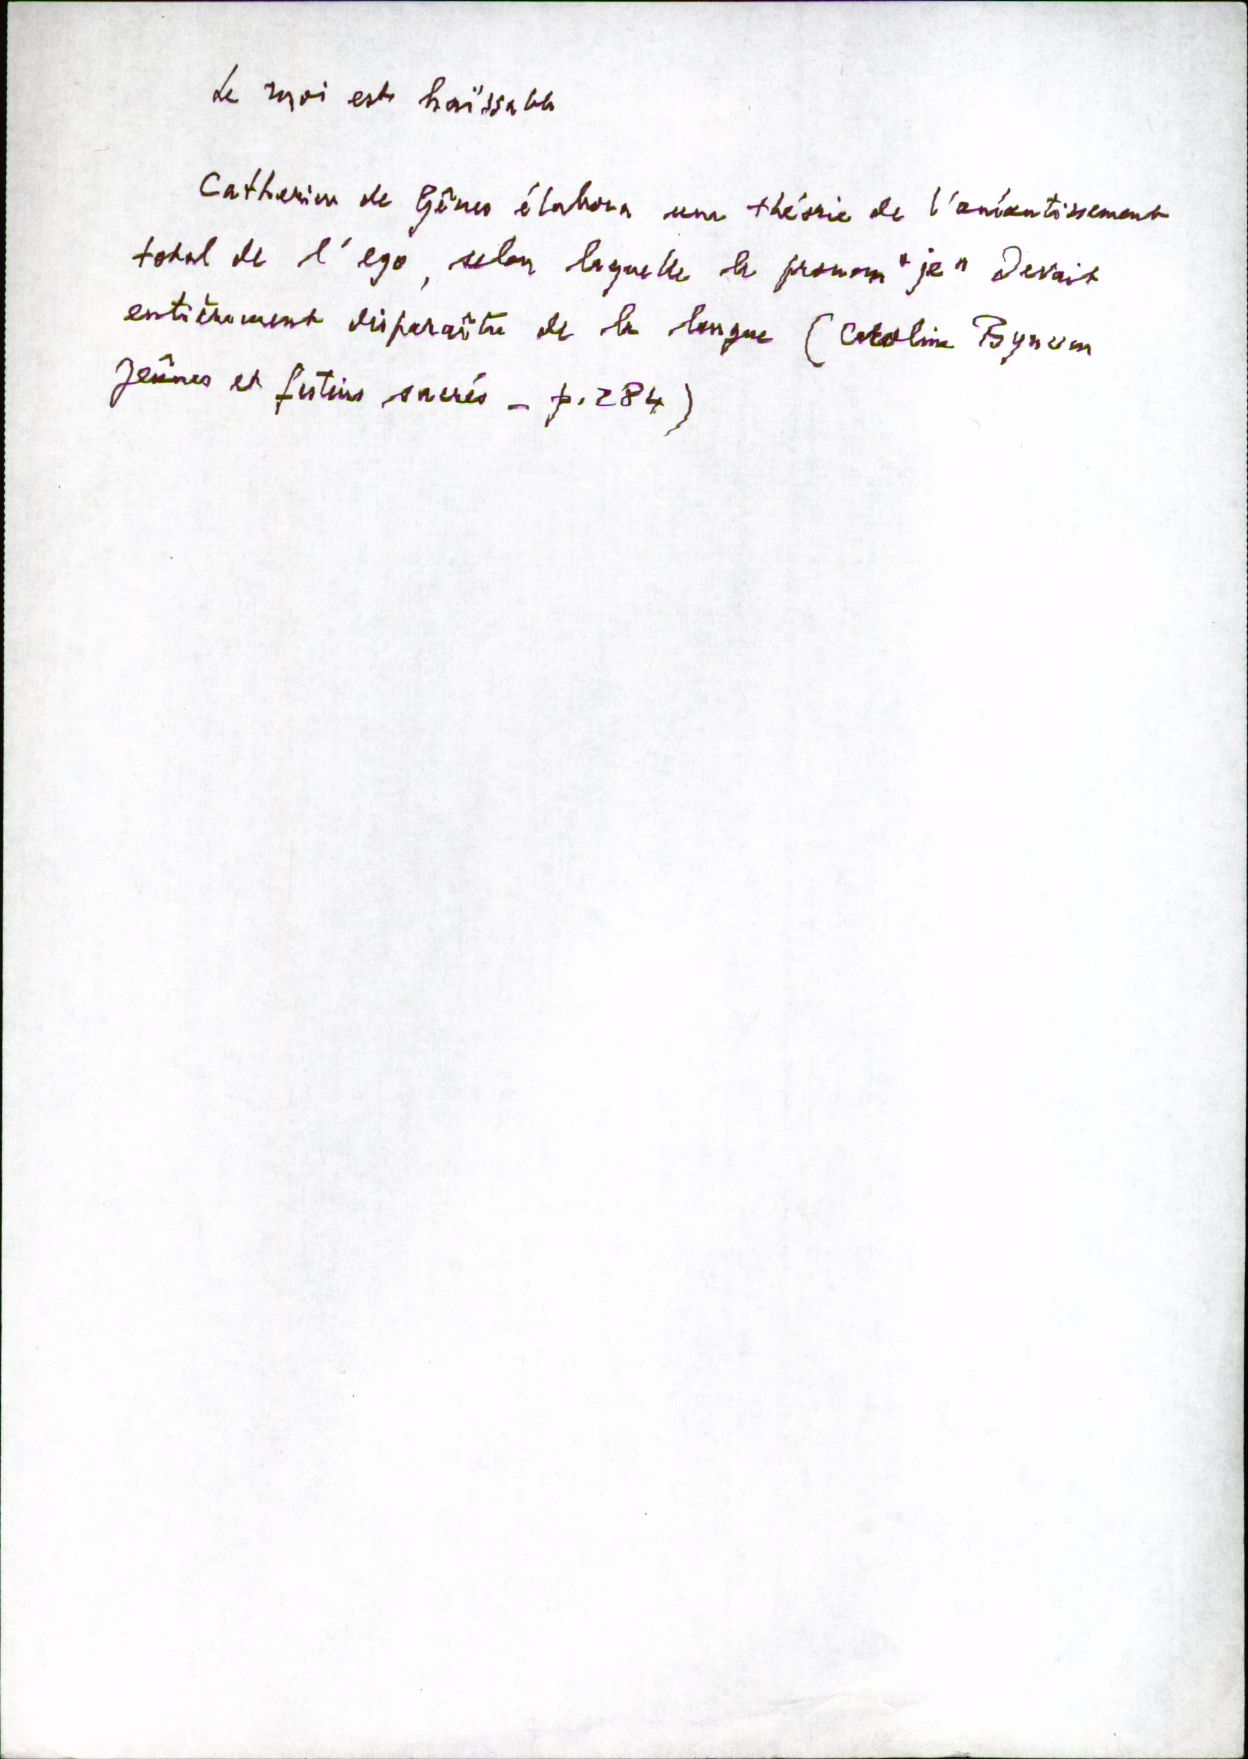 Le moi est haïssable
Catherine de Gênes élabora une théorie de l'anéantissement
total de l'ego, selon laquelle le pronom "je" devait
entièrement disparaître de la langue (Caroline Bynum
Jeûnes et festins sacrés - p. 284)